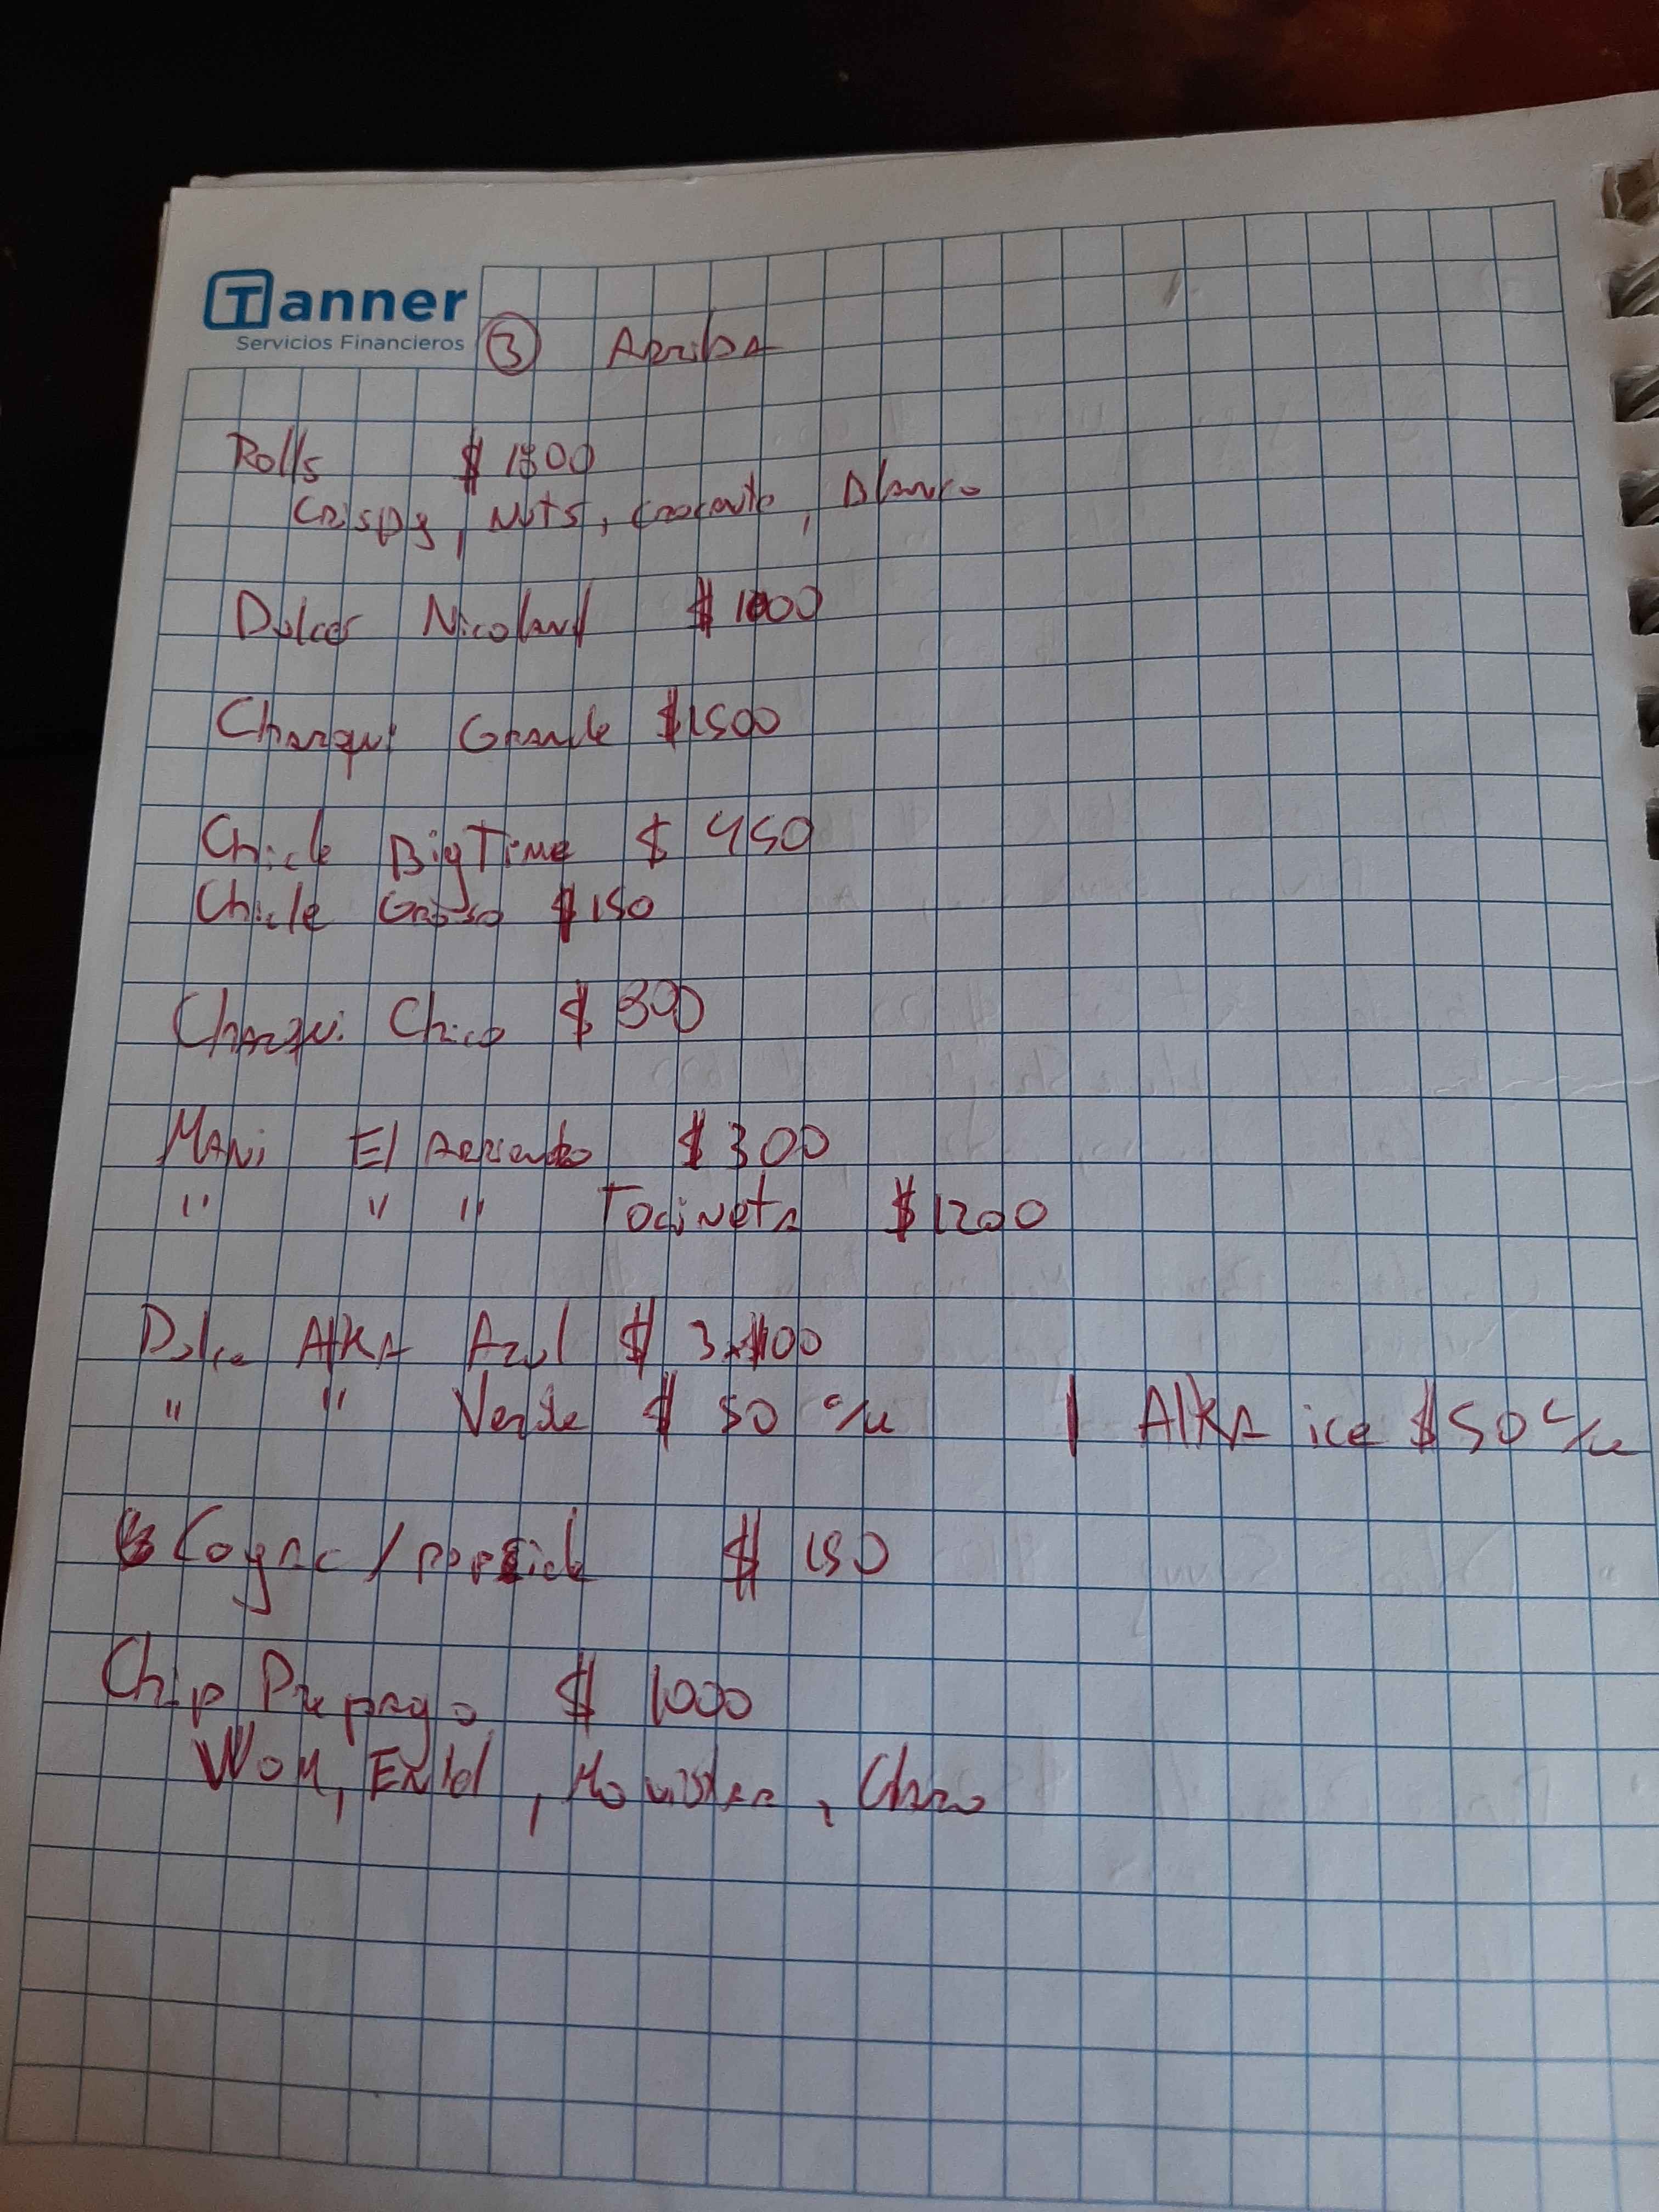 Tanner
Servicios Financieros
3 Arriba
Rolls $
Crispy, Nuts, crocante, Blanco
Dulces Nicoland $
Charqui Grande $1500
Chicle BigTime $ 450
Chicle Grosso $150
Charqui Chico $ 300
Mani El Arriendo $ 300
" " " Tocineta $1200
Dulce Alka Azul $ 3x100
" " Verde $ 50 c/u | Alka ice $50 c/u
Cognac / popsicle $ 150
Chip Prepago $ 1000
Wom, Entel, Movistar, Claro